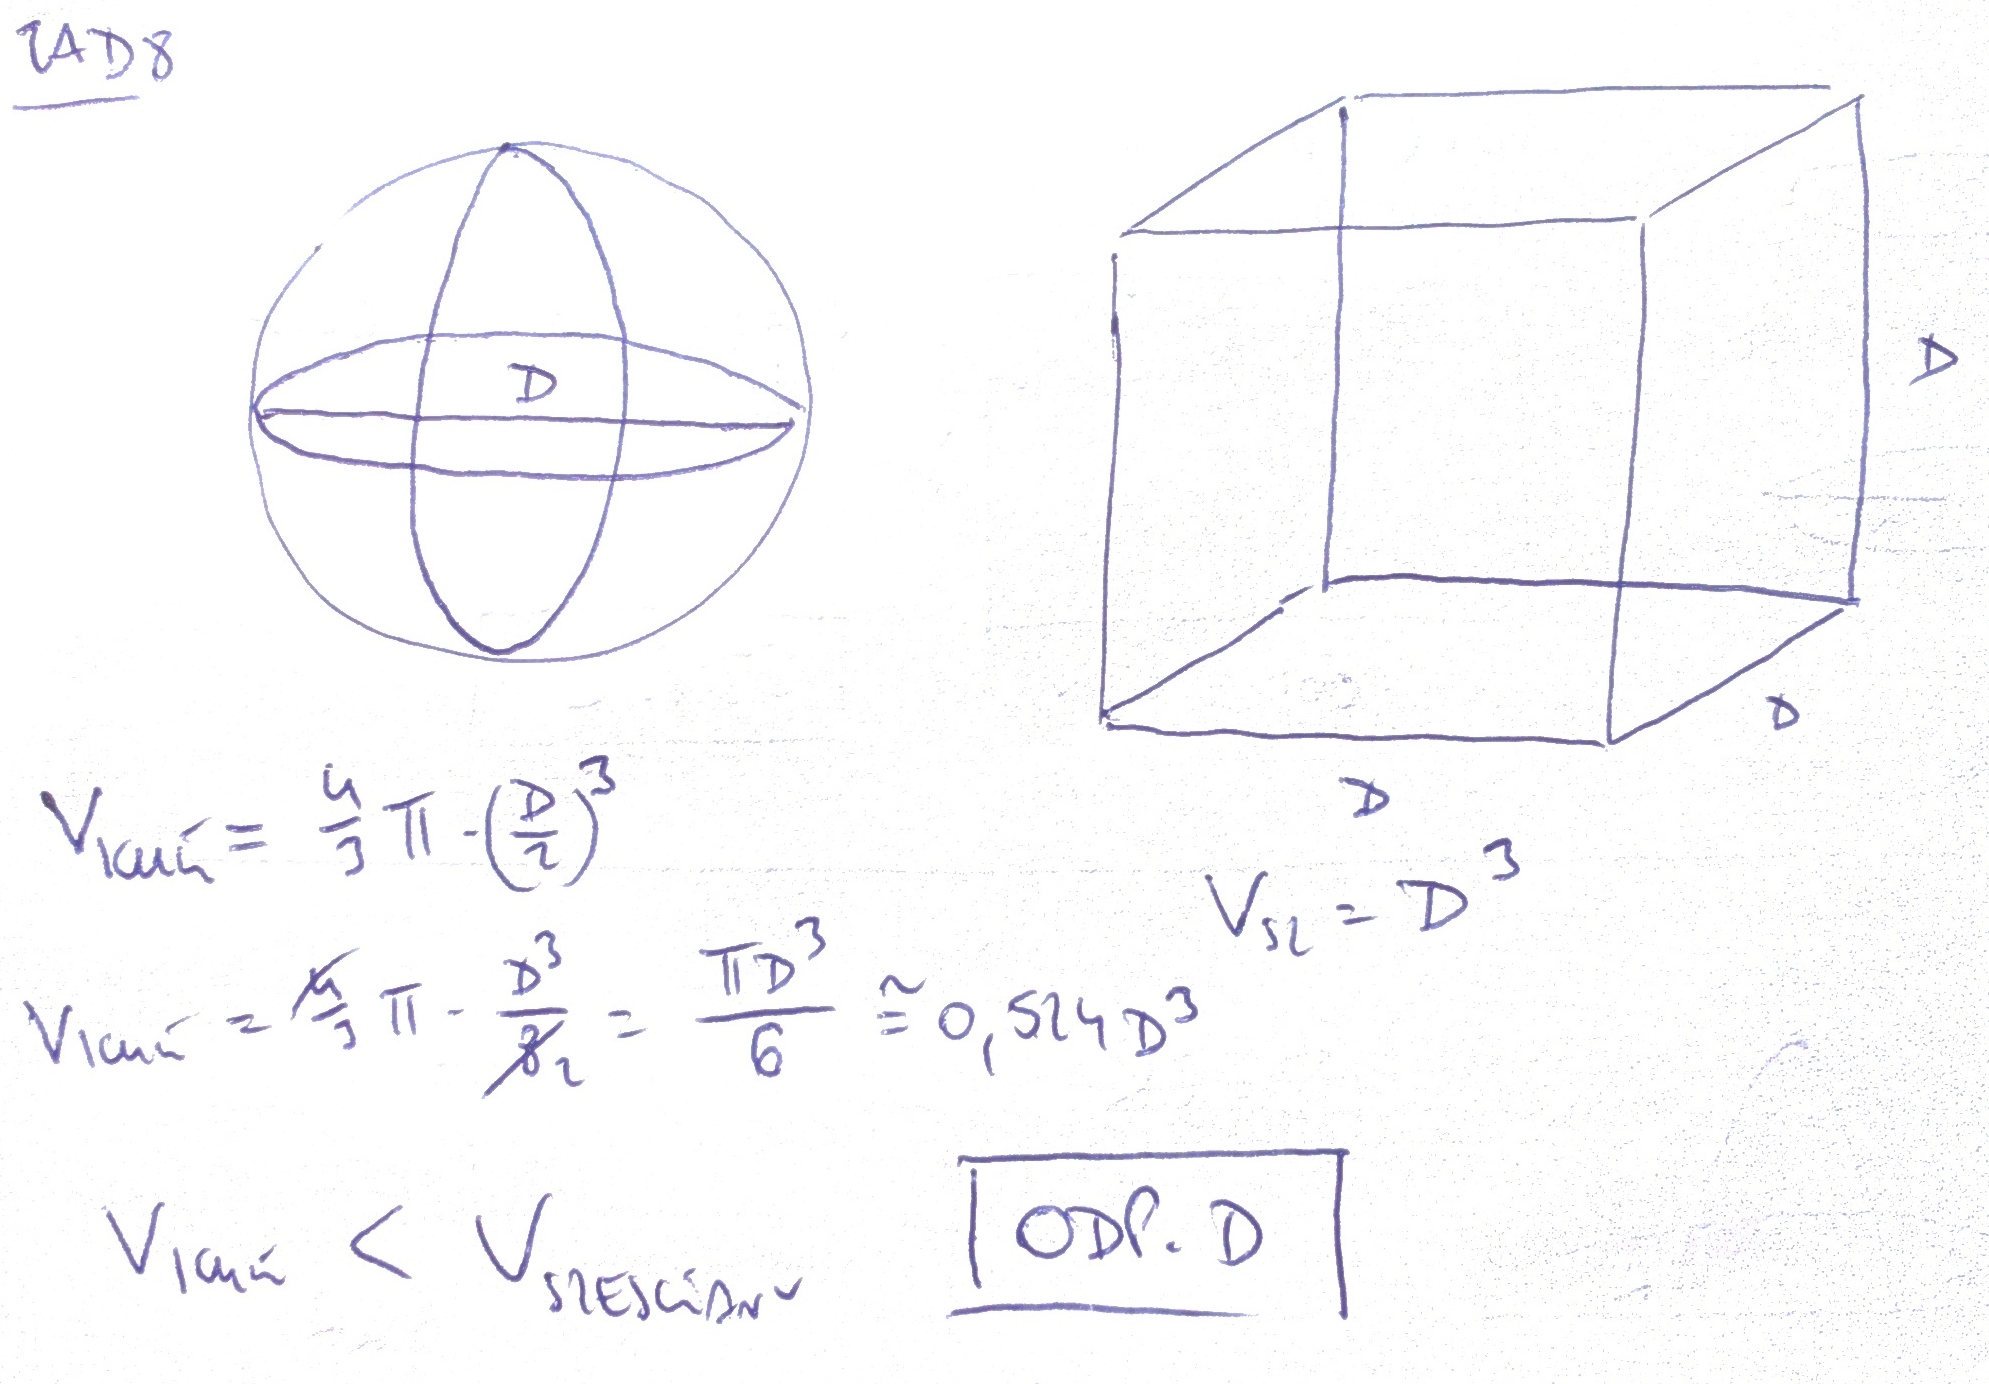 ZAD8
D
D
D
D
V_kuli = 4/3 π · (D/2)^3
V_sz = D^3
V_kuli = 4/3 π · D^3/8 2 = πD^3/6 ≅ 0,524 D^3
V_kuli < V_SZEŚCIANU
ODP. D